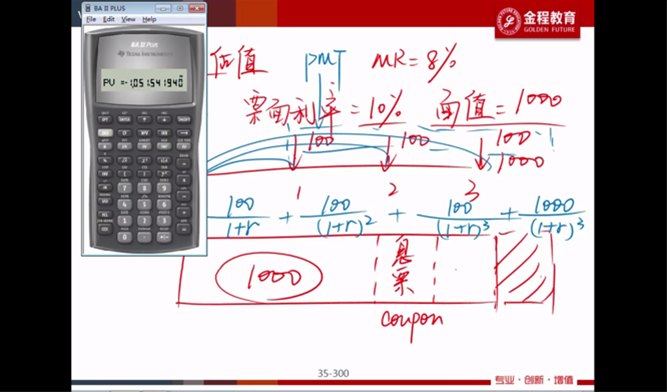 BA II PLUS
File Edit View Help
BA II PLUS
TEXAS INSTRUMENTS
PV =-1,051.541940
金程教育
GOLDEN FUTURE
估值 PMT MR=8%
票面利率=10% 面值=1000
100 100 100
1000
1 2 3
100/1+r + 100/(1+r)² + 100/(1+r)³ + 1000/(1+r)³
1000 息票
coupon
35-300
专业·创新·增值